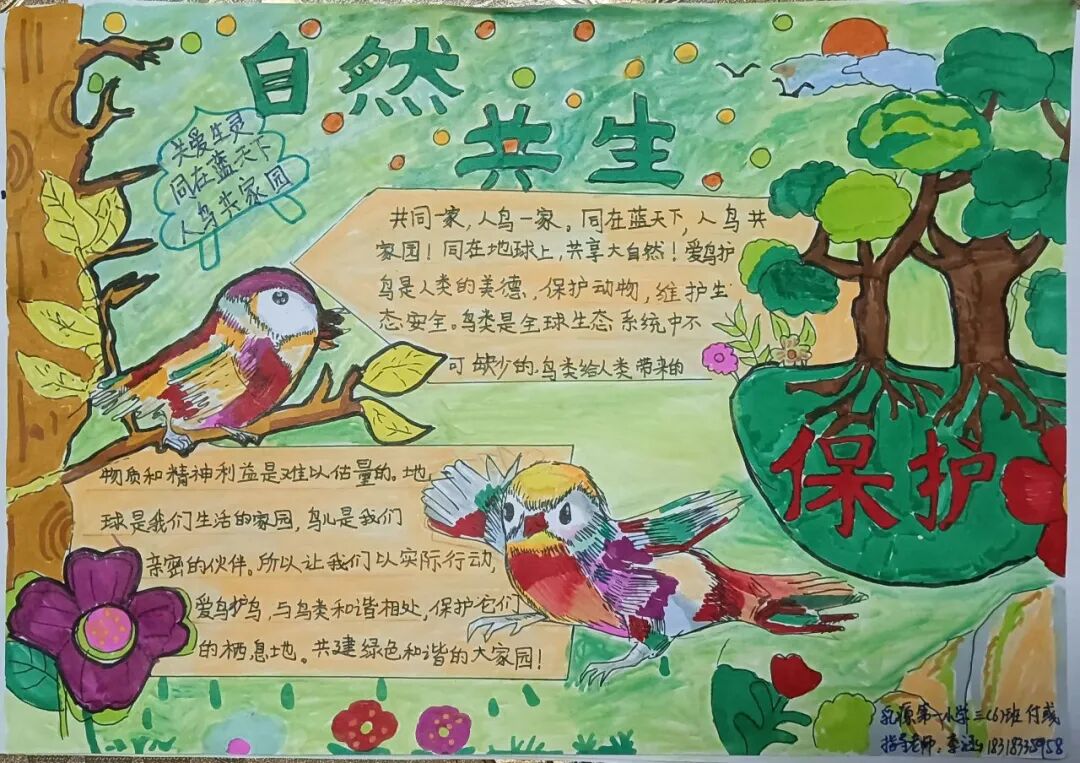 自然
共生
关爱生灵
同在蓝天下
人鸟共家园
共同一家,人鸟一家。同在蓝天下,人鸟共
家园!同在地球上,共享大自然!爱鸟护
鸟是人类的美德,保护动物,维护生
态安全。鸟类是全球生态系统中不
可缺少的.鸟类给人类带来的
物质和精神利益是难以估量的。地
球是我们生活的家园,鸟儿是我们
亲密的伙伴。所以让我们以实际行动,
爱鸟护鸟,与鸟类和谐相处,保护它们
的栖息地。共建绿色和谐的大家园!
保护
乳源第一小学三(6)班付彧
指导老师:李 18318335958